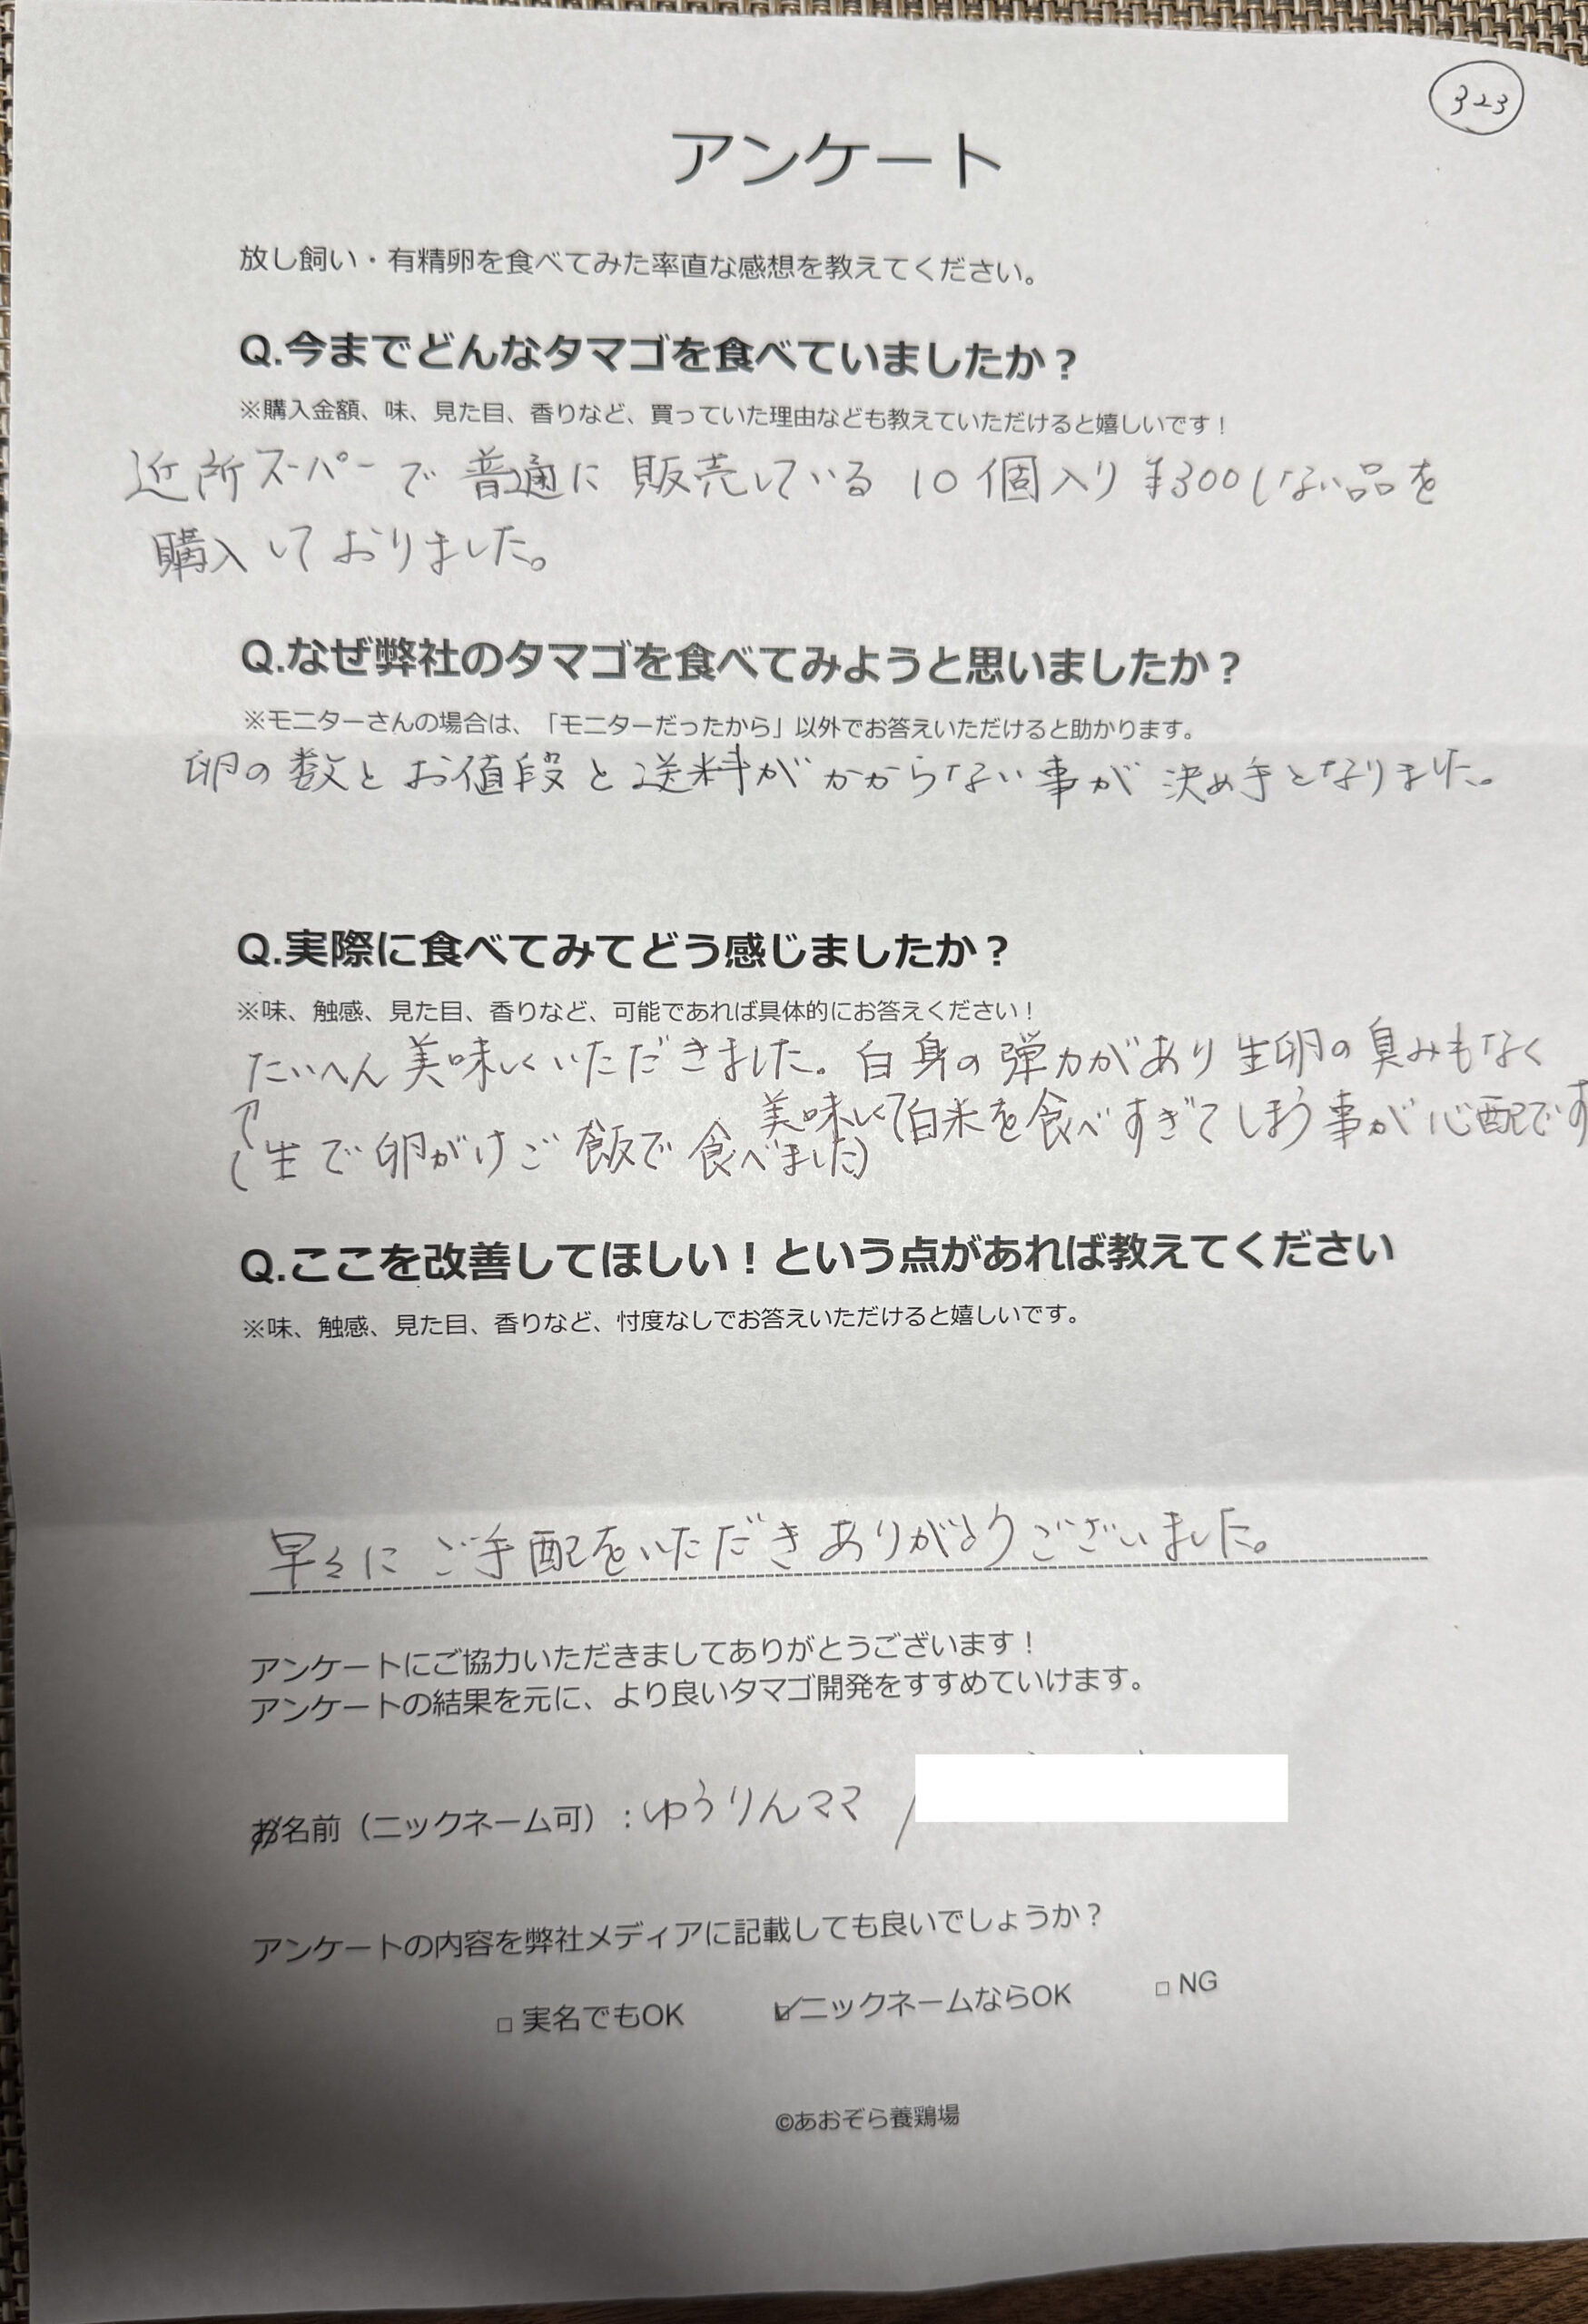 323
アンケート
放し飼い・有精卵を食べてみた率直な感想を教えてください。
Q.今までどんなタマゴを食べていましたか？
※購入金額、味、見た目、香りなど、買っていた理由なども教えていただけると嬉しいです！
近所スーパーで普通に販売している10個入り¥300しない品を
購入しておりました。
Q.なぜ弊社のタマゴを食べてみようと思いましたか？
※モニターさんの場合は、「モニターだったから」以外でお答えいただけると助かります。
卵の数とお値段と送料がかからない事が決め手となりました。
Q.実際に食べてみてどう感じましたか？
※味、触感、見た目、香りなど、可能であれば具体的にお答えください！
たいへん美味しくいただきました。白身の弾力があり生卵の臭みもなく
美味しくて白米を食べすぎてしまう事が心配です
↑(生で卵がけご飯で食べました)
Q.ここを改善してほしい！という点があれば教えてください
※味、触感、見た目、香りなど、忖度なしでお答えいただけると嬉しいです。
早々にご手配をいただきありがとうございました。
アンケートにご協力いただきましてありがとうございます！
アンケートの結果を元に、より良いタマゴ開発をすすめていけます。
お名前（ニックネーム可）：ゆうりんママ /
アンケートの内容を弊社メディアに記載しても良いでしょうか？
□ 実名でもOK ☑ニックネームならOK □ NG
©あおぞら養鶏場